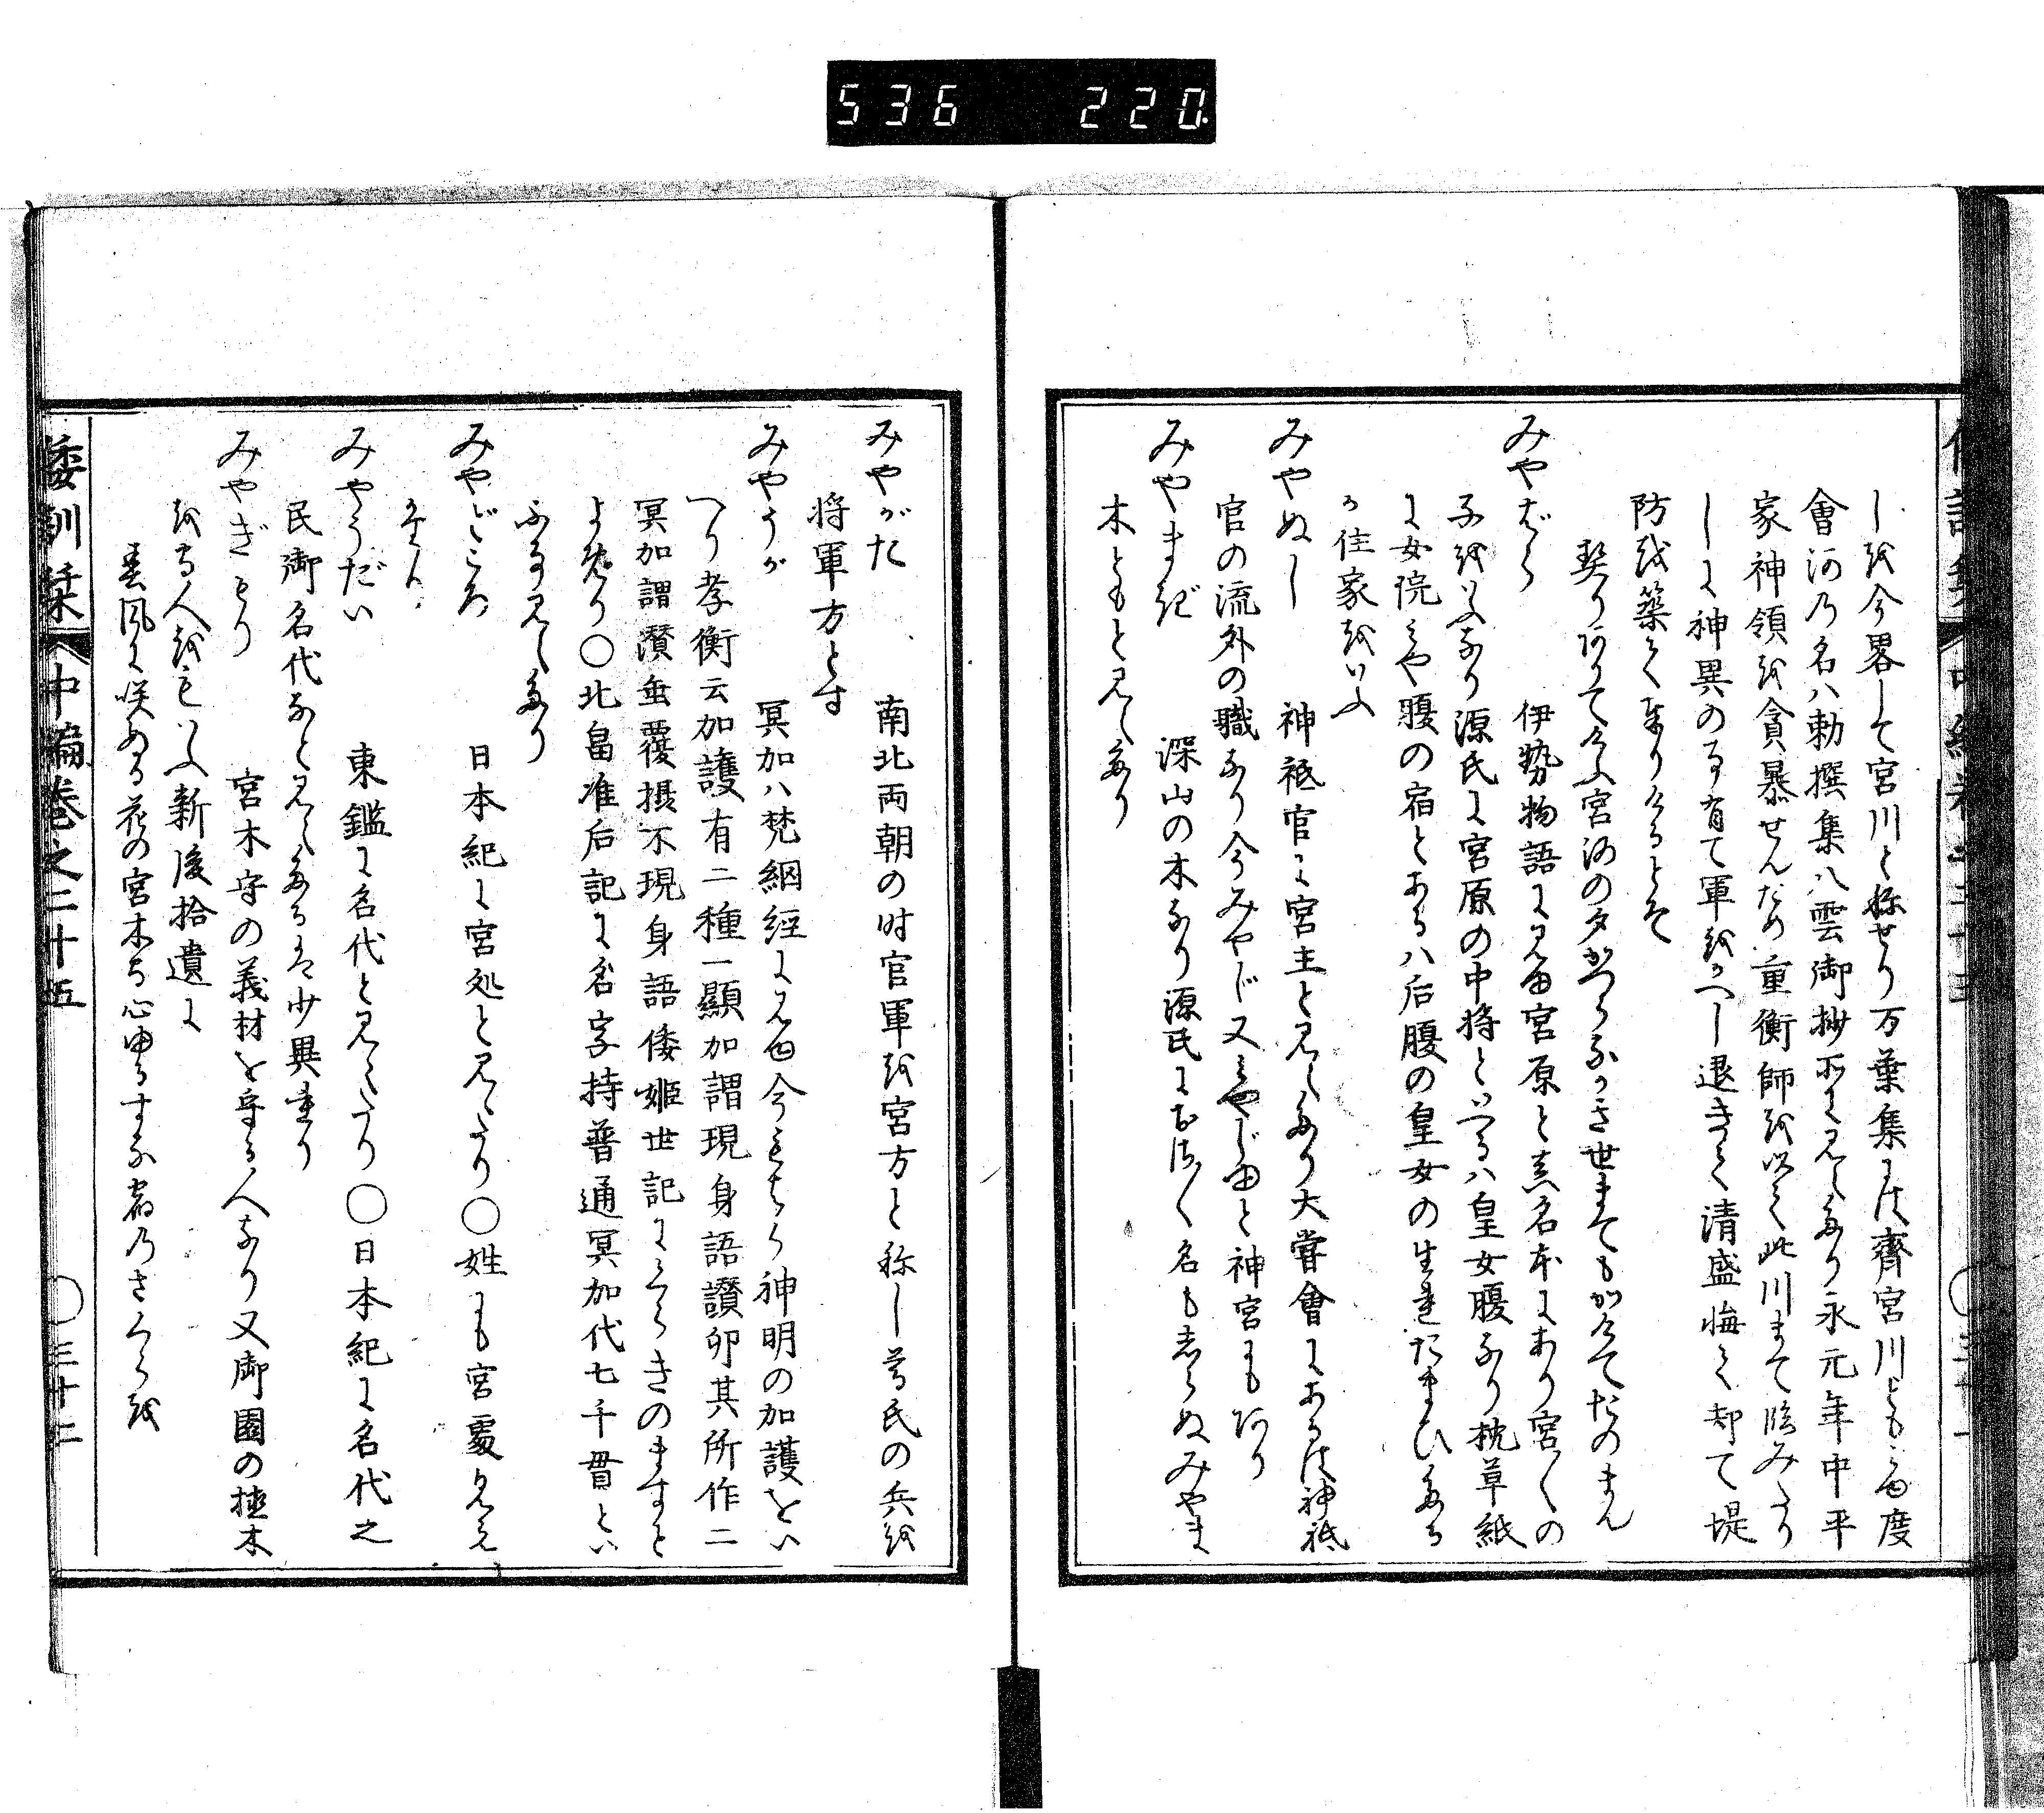 536 220
しを今畧して宮川と称せり万葉集には齊宮川ともみゆ度
會河の名ハ勅撰集八雲御抄等に見えたり永元年中平
家神領を貪暴せんため重衡師を以て此川まて臨みたり
しに神異の事有て軍をかへし退きて清盛悔て却て堤
防を築てまりけるとそ
契りありてけふ宮河の夕かつらなかき世まてもかけてたのまん
みやばら 伊勢物語に見ゆ宮原と真名本にあり宮〱の
子をいふなり源氏に宮原の中将といへるハ皇女腹なり枕草紙
に女院みや腹の宿とあるハ后腹の皇女の生れたまひたる
か住家をいふ
みやぬし 神祇官に宮主と見えたり大嘗會にあるは神祇
官の流外の職なり今みやじ又みやじゆと神宮にもあり
みやまぎ 深山の木なり源氏におほく名もしらぬみやま
木ともと見えたり
みやがた 南北両朝の時官軍を宮方と称し尊氏の兵を
将軍方とす
みやうが 冥加ハ梵網經に見ゆ今もはら神明の加護をい
へり孝衡云加護有二種一顯加謂現身語讃卯其所作二
冥加謂潛垂覆摂不現身語倭姫世記にみえ
よめり〇北畠准后記に名字持普通冥加代七千貫とい
ふ事見えたり
みやどころ 日本紀に宮処と見えたり〇姓にも宮處見え
たり
みやうだい 東鑑に名代と見えたり〇日本紀に名代之
民御名代なと見えたるは少異なり
みやぎもり 宮木守の義材を守る人なり又御園の植木
を守る人をもいふ新後拾遺に
春風に咲ぬる花の宮木守心ゆるすな宿のさくらを
倭訓栞 中編巻之二十五 〇三十二